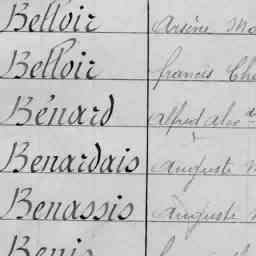 Belloir Arsène
Belloir francis
Bénard Alfred
Benardais Auguste
Benassis Auguste
Benis